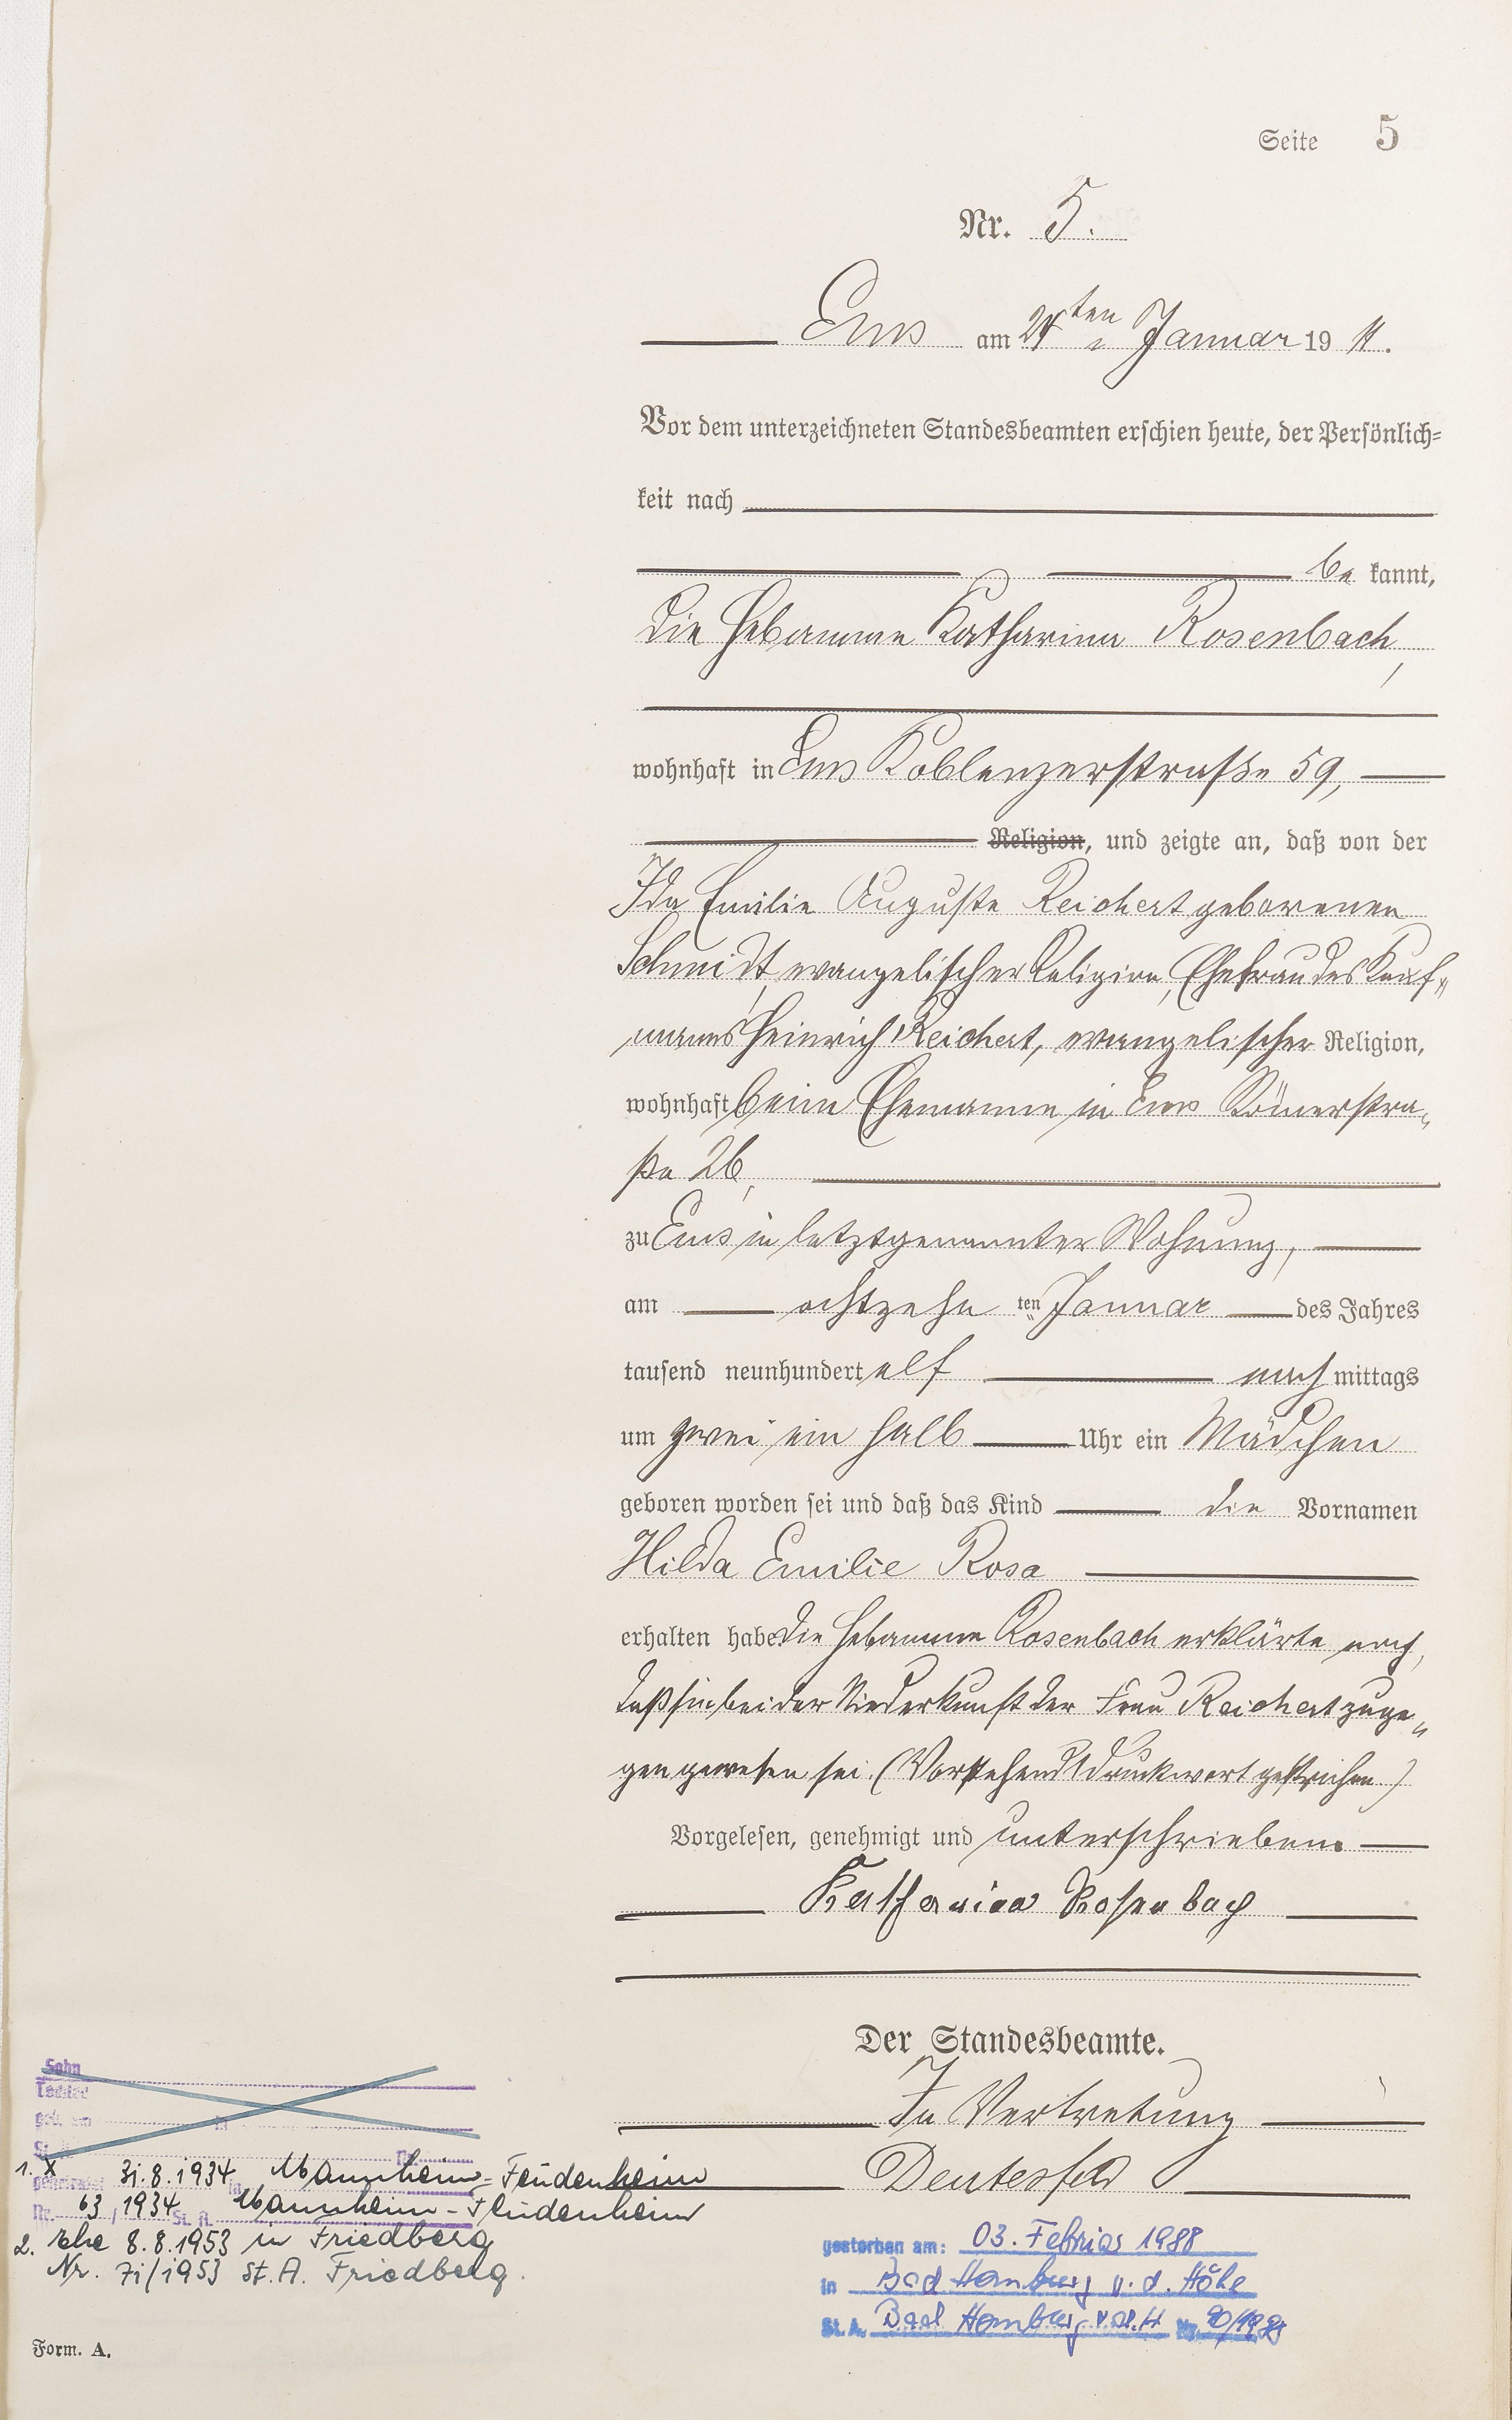 Seite 5
Nr. 5.
Ems am 21ten Januar 19 11.
Vor dem unterzeichneten Standesbeamten erschien heute, der Persönlich=
keit nach
be kannt,
die Hebamme Katharina Rosenbach,
wohnhaft in Ems Koblenzerstraße 59,
Religion, und zeigte an, daß von der
Ida Emilie Auguste Reichert geborenen
Schmidt, evangelischer Religion, Ehefrau des Kauf„
manns Heinrich Reichert, evangelischer Religion,
wohnhaft beim Ehemanne in Ems Römerstra„
ße 26,
zu Ems in letztgenannter Wohnung,
am achtzehn ten Januar des Jahres
tausend neunhundert elf nach mittags
um zwei ein halb Uhr ein Mädchen
geboren worden sei und daß das Kind die Vornamen
Hilda Emilie Rosa
erhalten habe die Hebamme Rosenbach erklärte noch,
daß sie bei der Niederkunft der Frau Reichert zuge„
gen gewesen sei. (Vorstehend 1 Druckwort gestrichen.)
Vorgelesen, genehmigt und unterschrieben.
Katharina Rosenbach
Der Standesbeamte.
In Vertretung
Deutesfeld
Sohn
Tochter
geb. am in
St. A. Nr.
1. X geheiratet 31.8.1934 in Mannheim-Feudenheim
Nr. 63/1934 St. A. Mannheim-Feudenheim
2. Ehe 8.8.1953 in Friedberg
Nr. 71/1953 St. A. Friedberg.
gestorben am: 03. Februar 1988
in Bad Homburg v. d. Höhe
St. A. Bad Homburg v.d.H Nr.
Form. A.